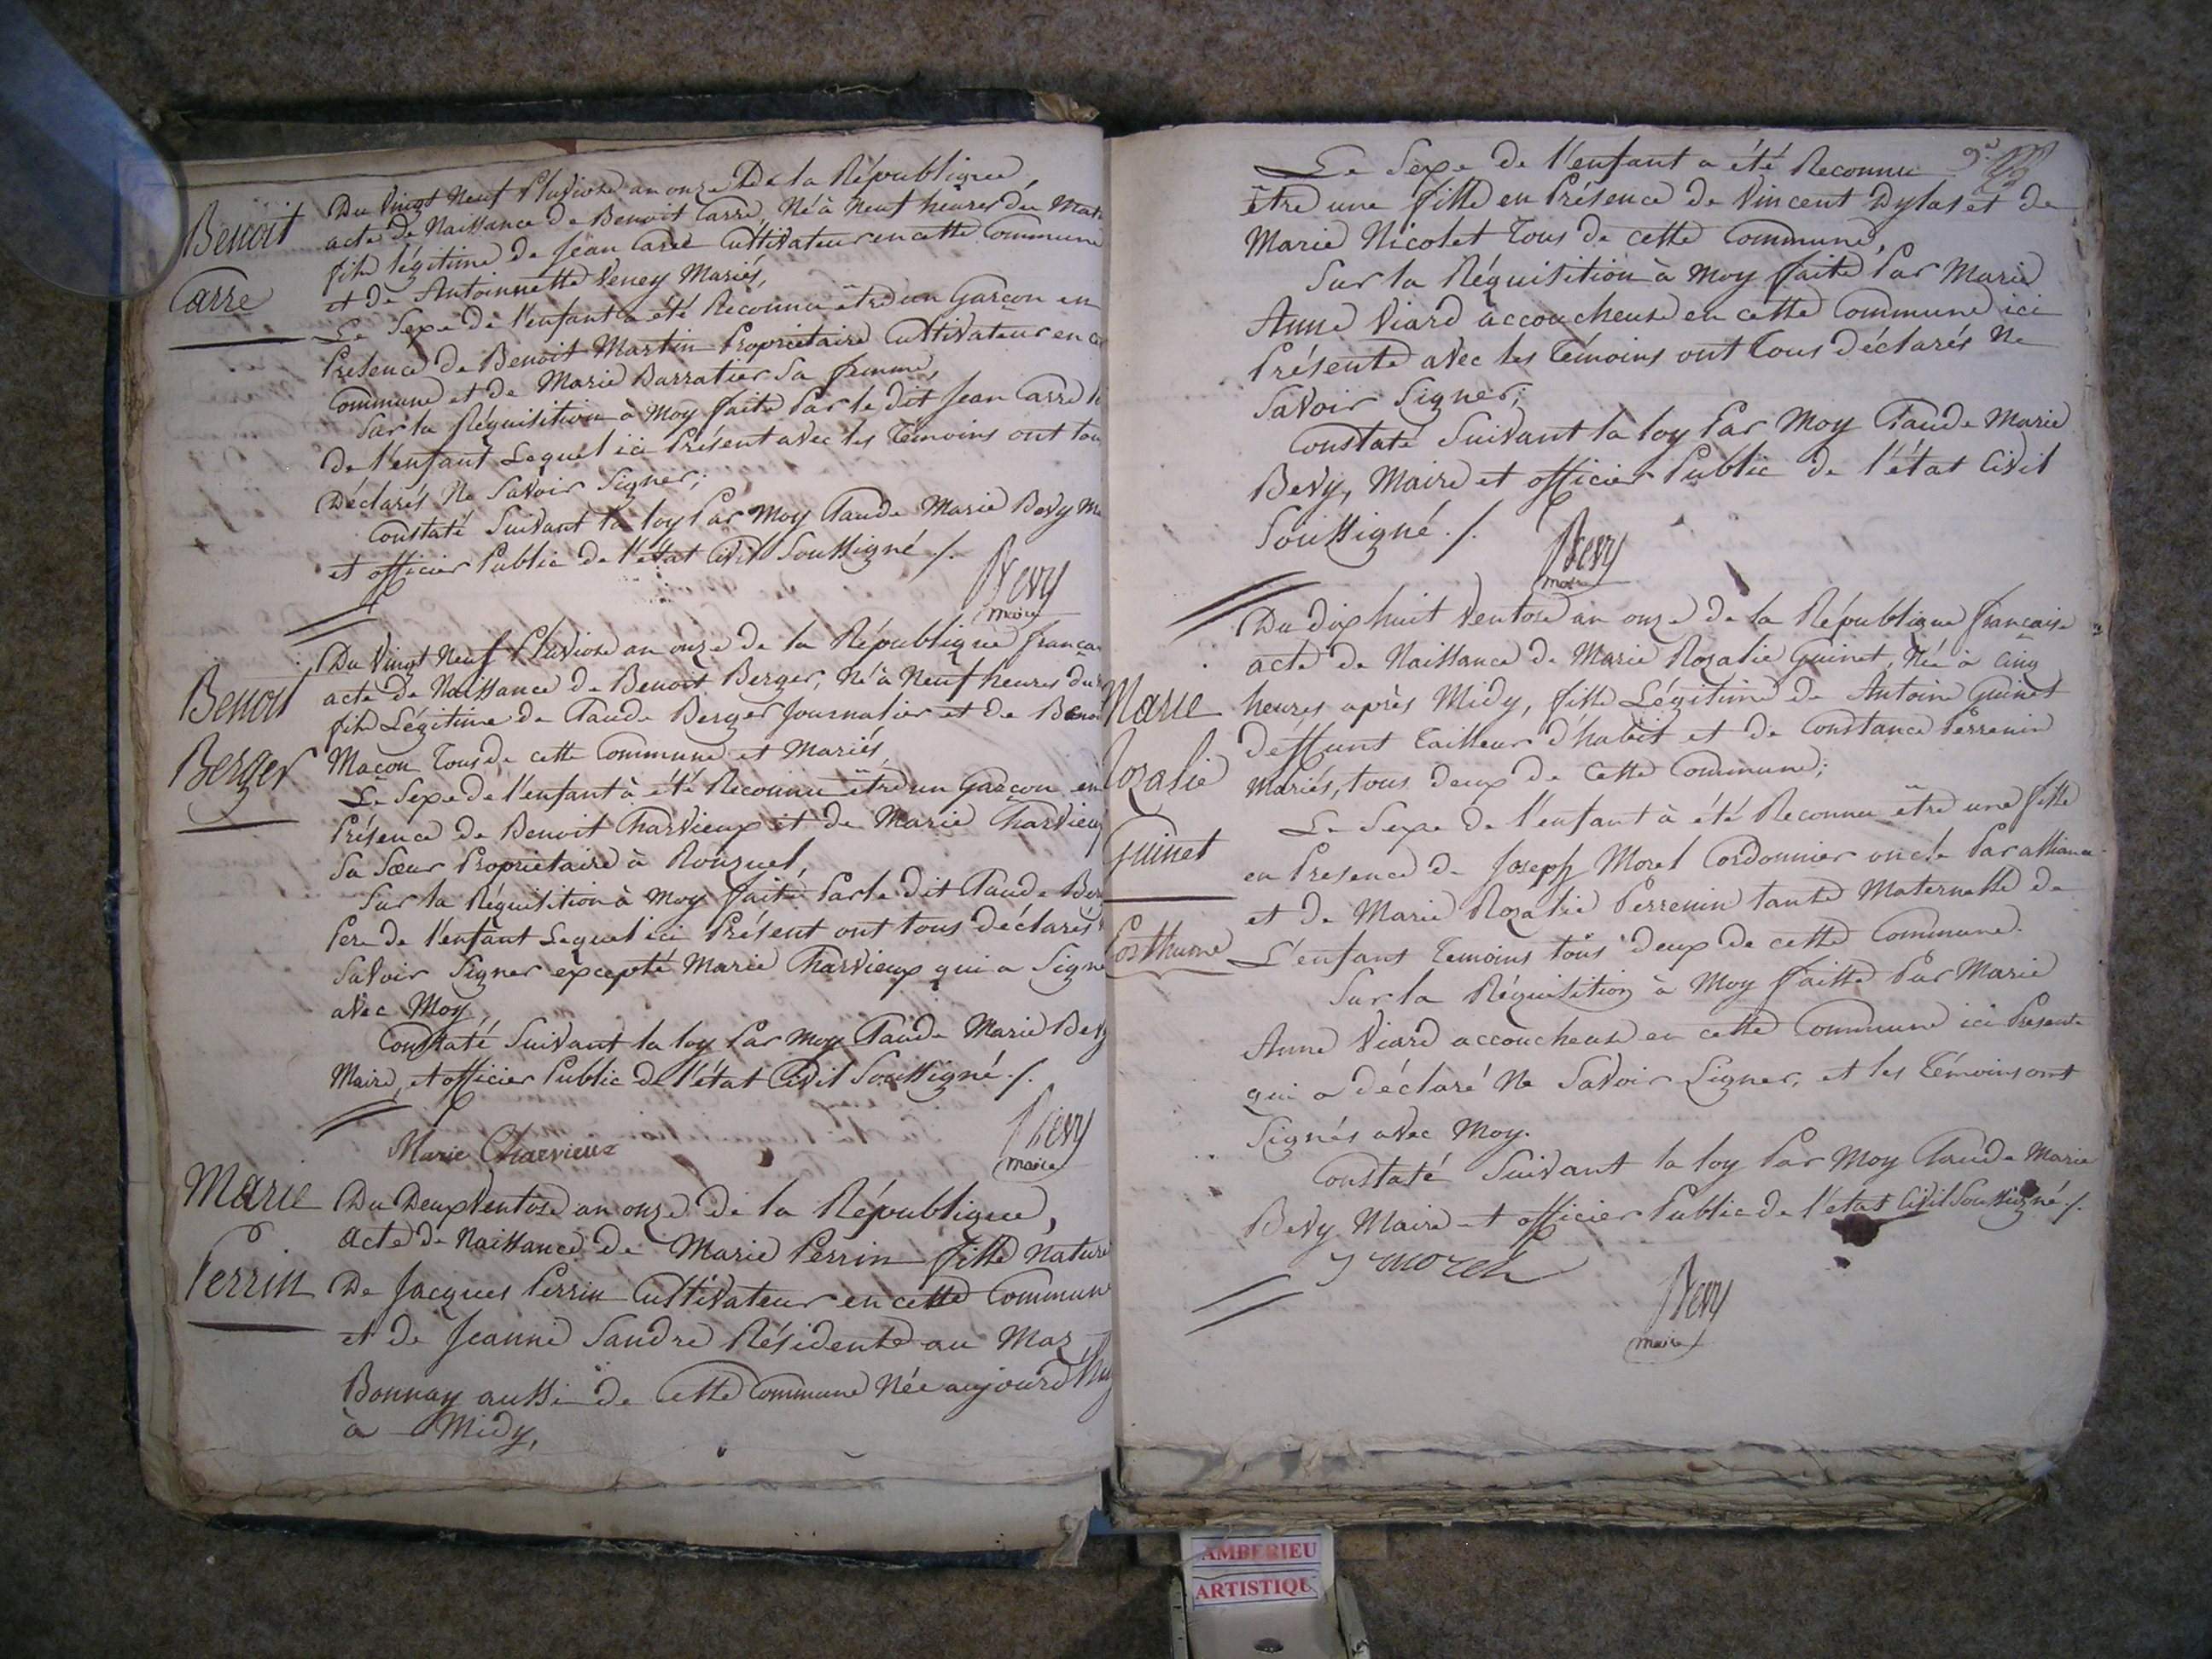 Benoit
Carre
Du Vingt Neuf Pluviose an onze De la République,
acte de Naissance de Benoit Carre, Né à Neuf heures du Mat
fils légitime de Jean Carré Cultivateur en cette Commune
et de Antoinette Veney Mariés,
Le Sexe de l'enfant a été Reconnu être un Garçon en
Présence de Benoit Martin Propriétaire Cultivateur en
Commune et de Marie Barratier Sa femme,
Sur la Réquisition à Moy faite Par le dit Jean Carré
de l'enfant Lequel ici Présent avec les Témoins ont tou
Déclarés Ne Savoir Signer;
Constaté Suivant la loy Par Moy Claude Marie Bevy M
et officier Public de l'état Civil Soussigné ./.
Bevy
maire
Benoit
Berger
Du Vingt Neuf Pluviose an onze de la République França
acte de Naissance de Benoit Berger, Né à Neuf heures du
fils Légitime de Claude Berger Journalier et de Benoi
Macon Tous de cette Commune et Mariés,
Le Sexe de l'enfant à été Reconnu être un Garçon en
Présence de Benoit Charvieux et de Marie Charvieux
Sa Sœur Propriétaire à
Sur la Réquisition à Moy faite Par le dit Claude Ber
Pere de l'enfant Lequel ici Présent ont tous déclarés
Savoir Signer excepté Marie Charvieux qui a Signé
avec Moy,
Constaté Suivant la loy Par Moy Claude Marie Bevy
Maire, et officier Public de l'état Civil Soussigné ./.
Marie Charvieux
Bevy
maire
Marie
Perrin
Du Deux Ventose an onze de la République,
Acte de Naissance de Marie Perrin fille Nature
De Jacques Perrin Cultivateur en cette Commune
et de Jeanne Sandre Résidente au Mas
Bonnay aussi de Cette Commune Née aujourd'huy
à Midy,
Le Sexe de l'enfant a été Reconnu
être une fille en Présence de Vincent Dylas et de
Marie Nicolet Tous de cette Commune,
Sur la Réquisition à Moy faite Par Marie
Anne Viard accoucheuse en cette Commune ici
Présente avec les Témoins ont Tous déclarés Ne
Savoir Signer;
Constaté Suivant la loy Par Moy Claude Marie
Bevy, Maire et officier Public de l'état Civil
Soussigné ./.
Bevy
maire
Marie
Rozalie
Guinet
Posthume
Du dix huit Ventose an onze de la République française
acte de Naissance de Marie Rozalie Guinet, Née à Cinq
heures après Midy, fille Légitime de Antoine Guinet
deffunt Tailleur d'habit et de Constance Perrenin
Mariés, tous deux de Cette Commune;
Le Sexe de l'enfant à été Reconnu être une fille
en Presence de Joseph Morel Cordonnier oncle Par alliance
et de Marie Rozalie Perrenin tante Maternelle de
L'enfant Temoins tous deux de cette Commune.
Sur la Réquisition à Moy faitte Par Marie
Anne Viard accoucheuse en cette Commune ici Présente
qui a déclaré Ne Savoir Signer, et les Témoins ont
Signés avec Moy.
Constaté Suivant la loy Par Moy Claude Marie
Bevy Maire et officier Public de l'état Civil Soussigné ./.
J morel
Bevy
maire
AMBERIEU
ARTISTIQU